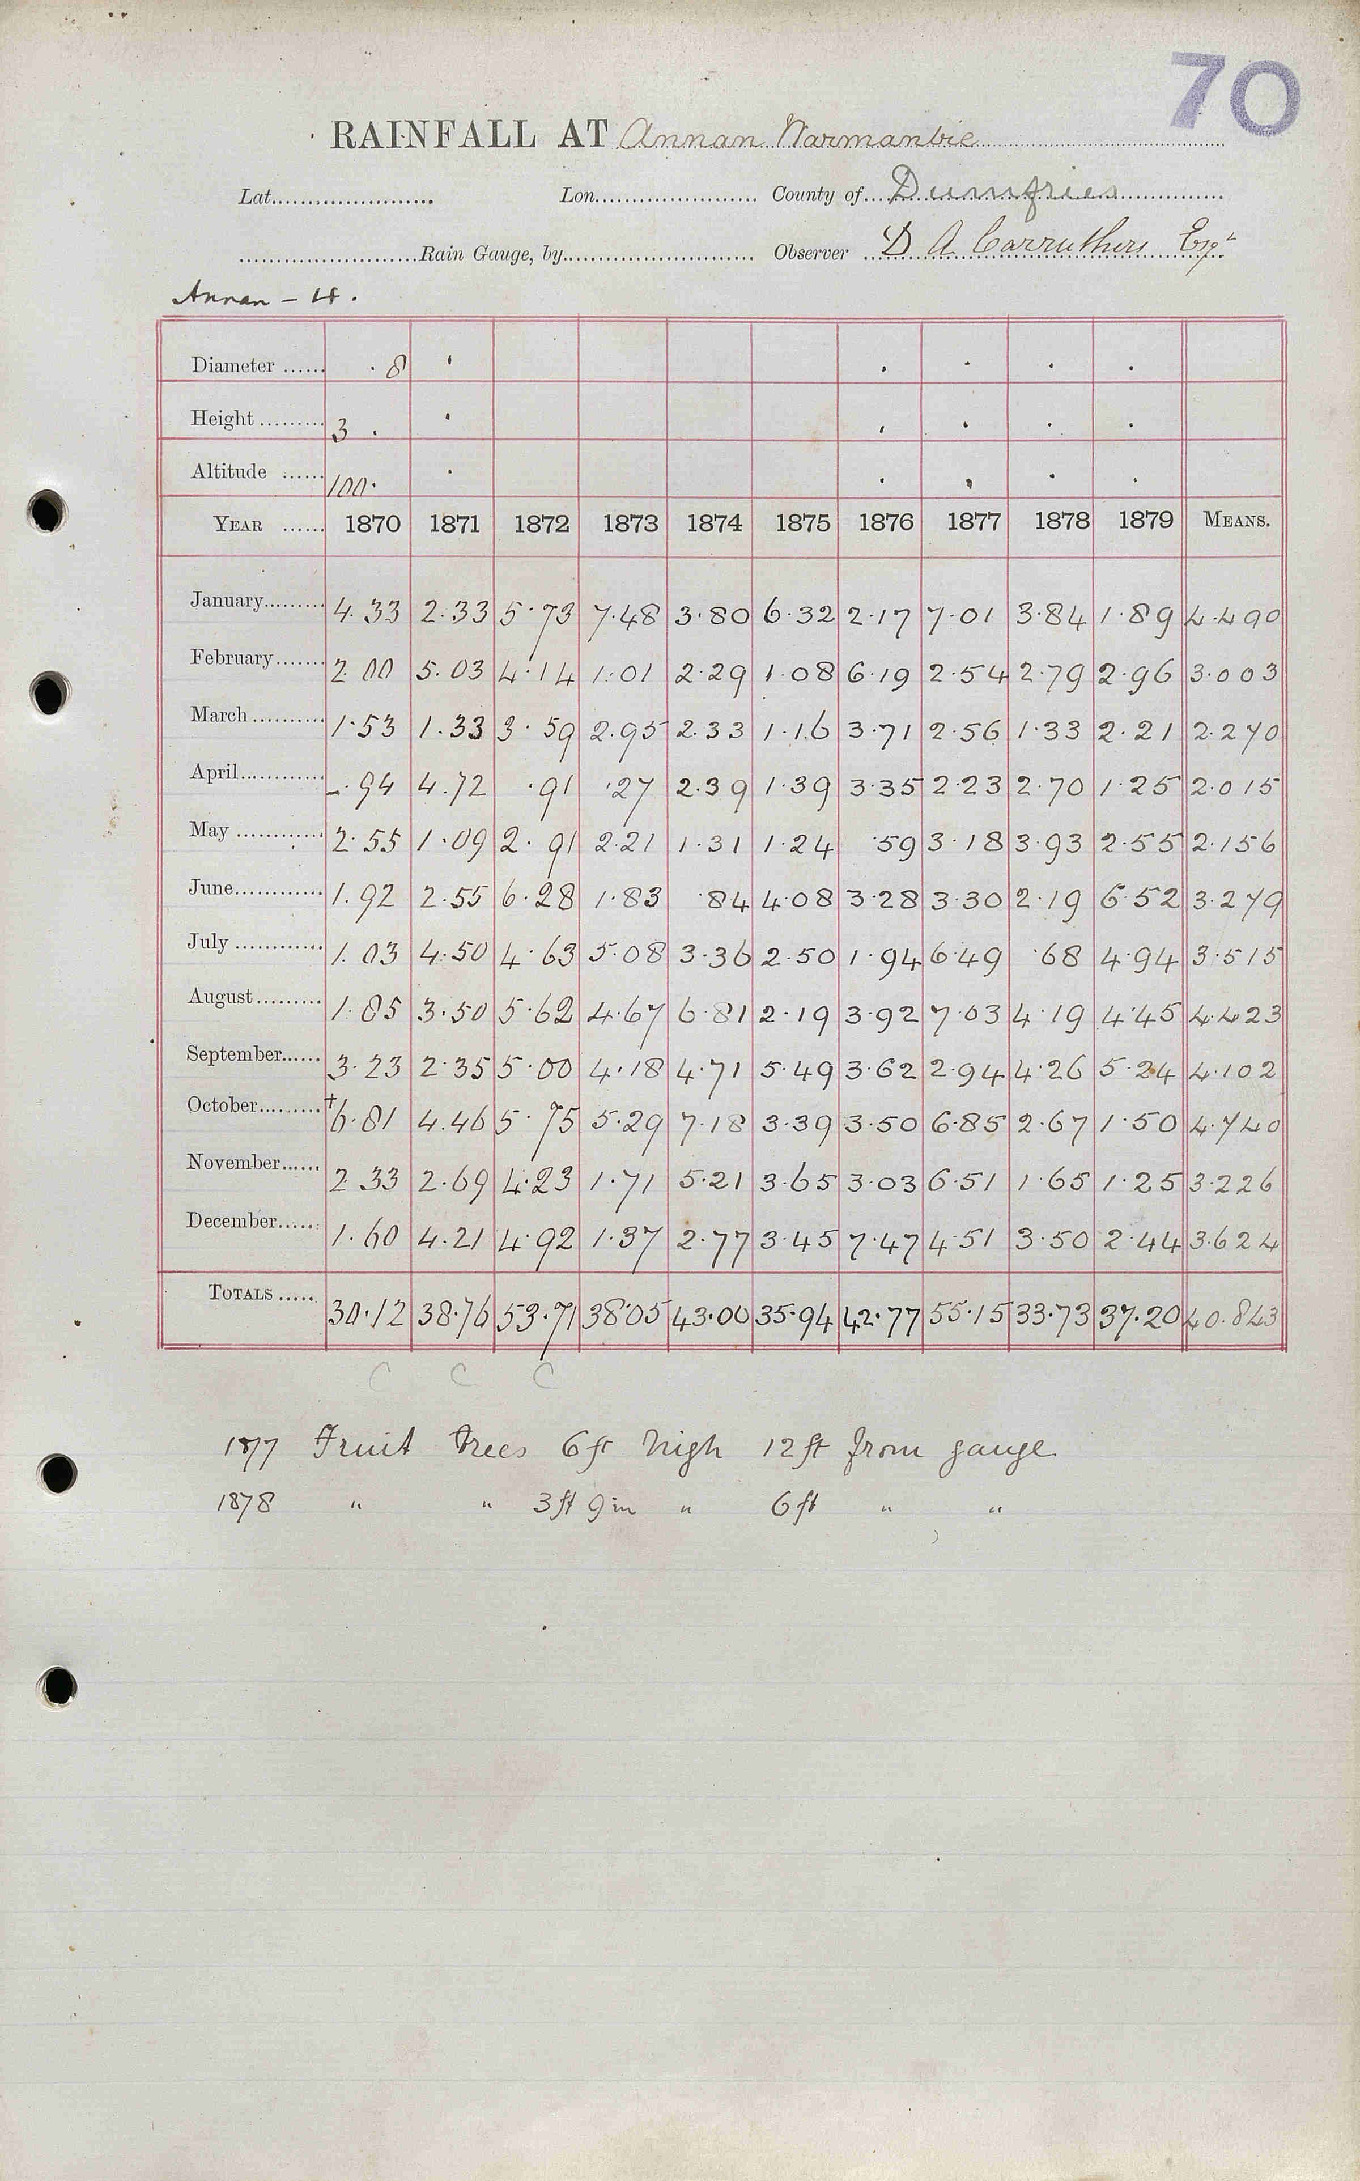 70
RAINFALL AT Annan Warmanbie
Lat. Lon. County of Dumfries
Rain Gauge, by Observer D A Carruthers Esqr
Annan - 4.
Diameter 8
Height 3
Altitude 100
YEAR 1870 1871 1872 1873 1874 1875 1876 1877 1878 1879 MEANS.
January 4.33 2.33 5.73 7.48 3.80 6.32 2.17 7.01 3.84 1.89 4.490
February 2.00 5.03 4.14 1.01 2.29 1.08 6.19 2.54 2.79 2.96 3.003
March 1.53 1.33 3.59 2.95 2.33 1.16 3.71 2.56 1.33 2.21 2.270
April -.94 4.72 .91 .27 2.39 1.39 3.35 2.23 2.70 1.25 2.015
May 2.55 1.09 2.91 2.21 1.31 1.24 .59 3.18 3.93 2.55 2.156
June 1.92 2.55 6.28 1.83 .84 4.08 3.28 3.30 2.19 6.52 3.279
July 1.03 4.50 4.63 5.08 3.36 2.50 1.94 6.49 .68 4.94 3.515
August 1.85 3.50 5.62 4.67 6.81 2.19 3.92 7.03 4.19 4.45 4.423
September 3.23 2.35 5.00 4.18 4.71 5.49 3.62 2.94 4.26 5.24 4.102
October +6.81 4.46 5.75 5.29 7.18 3.39 3.50 6.85 2.67 1.50 4.740
November 2.33 2.69 4.23 1.71 5.21 3.65 3.03 6.51 1.65 1.25 3.226
December 1.60 4.21 4.92 1.37 2.77 3.45 7.47 4.51 3.50 2.44 3.624
TOTALS 30.12 38.76 53.71 38.05 43.00 35.94 42.77 55.15 33.73 37.20 40.843
C C C
1877 Fruit trees 6ft high 12ft from gauge
1878 " " 3ft 9in " 6ft " "